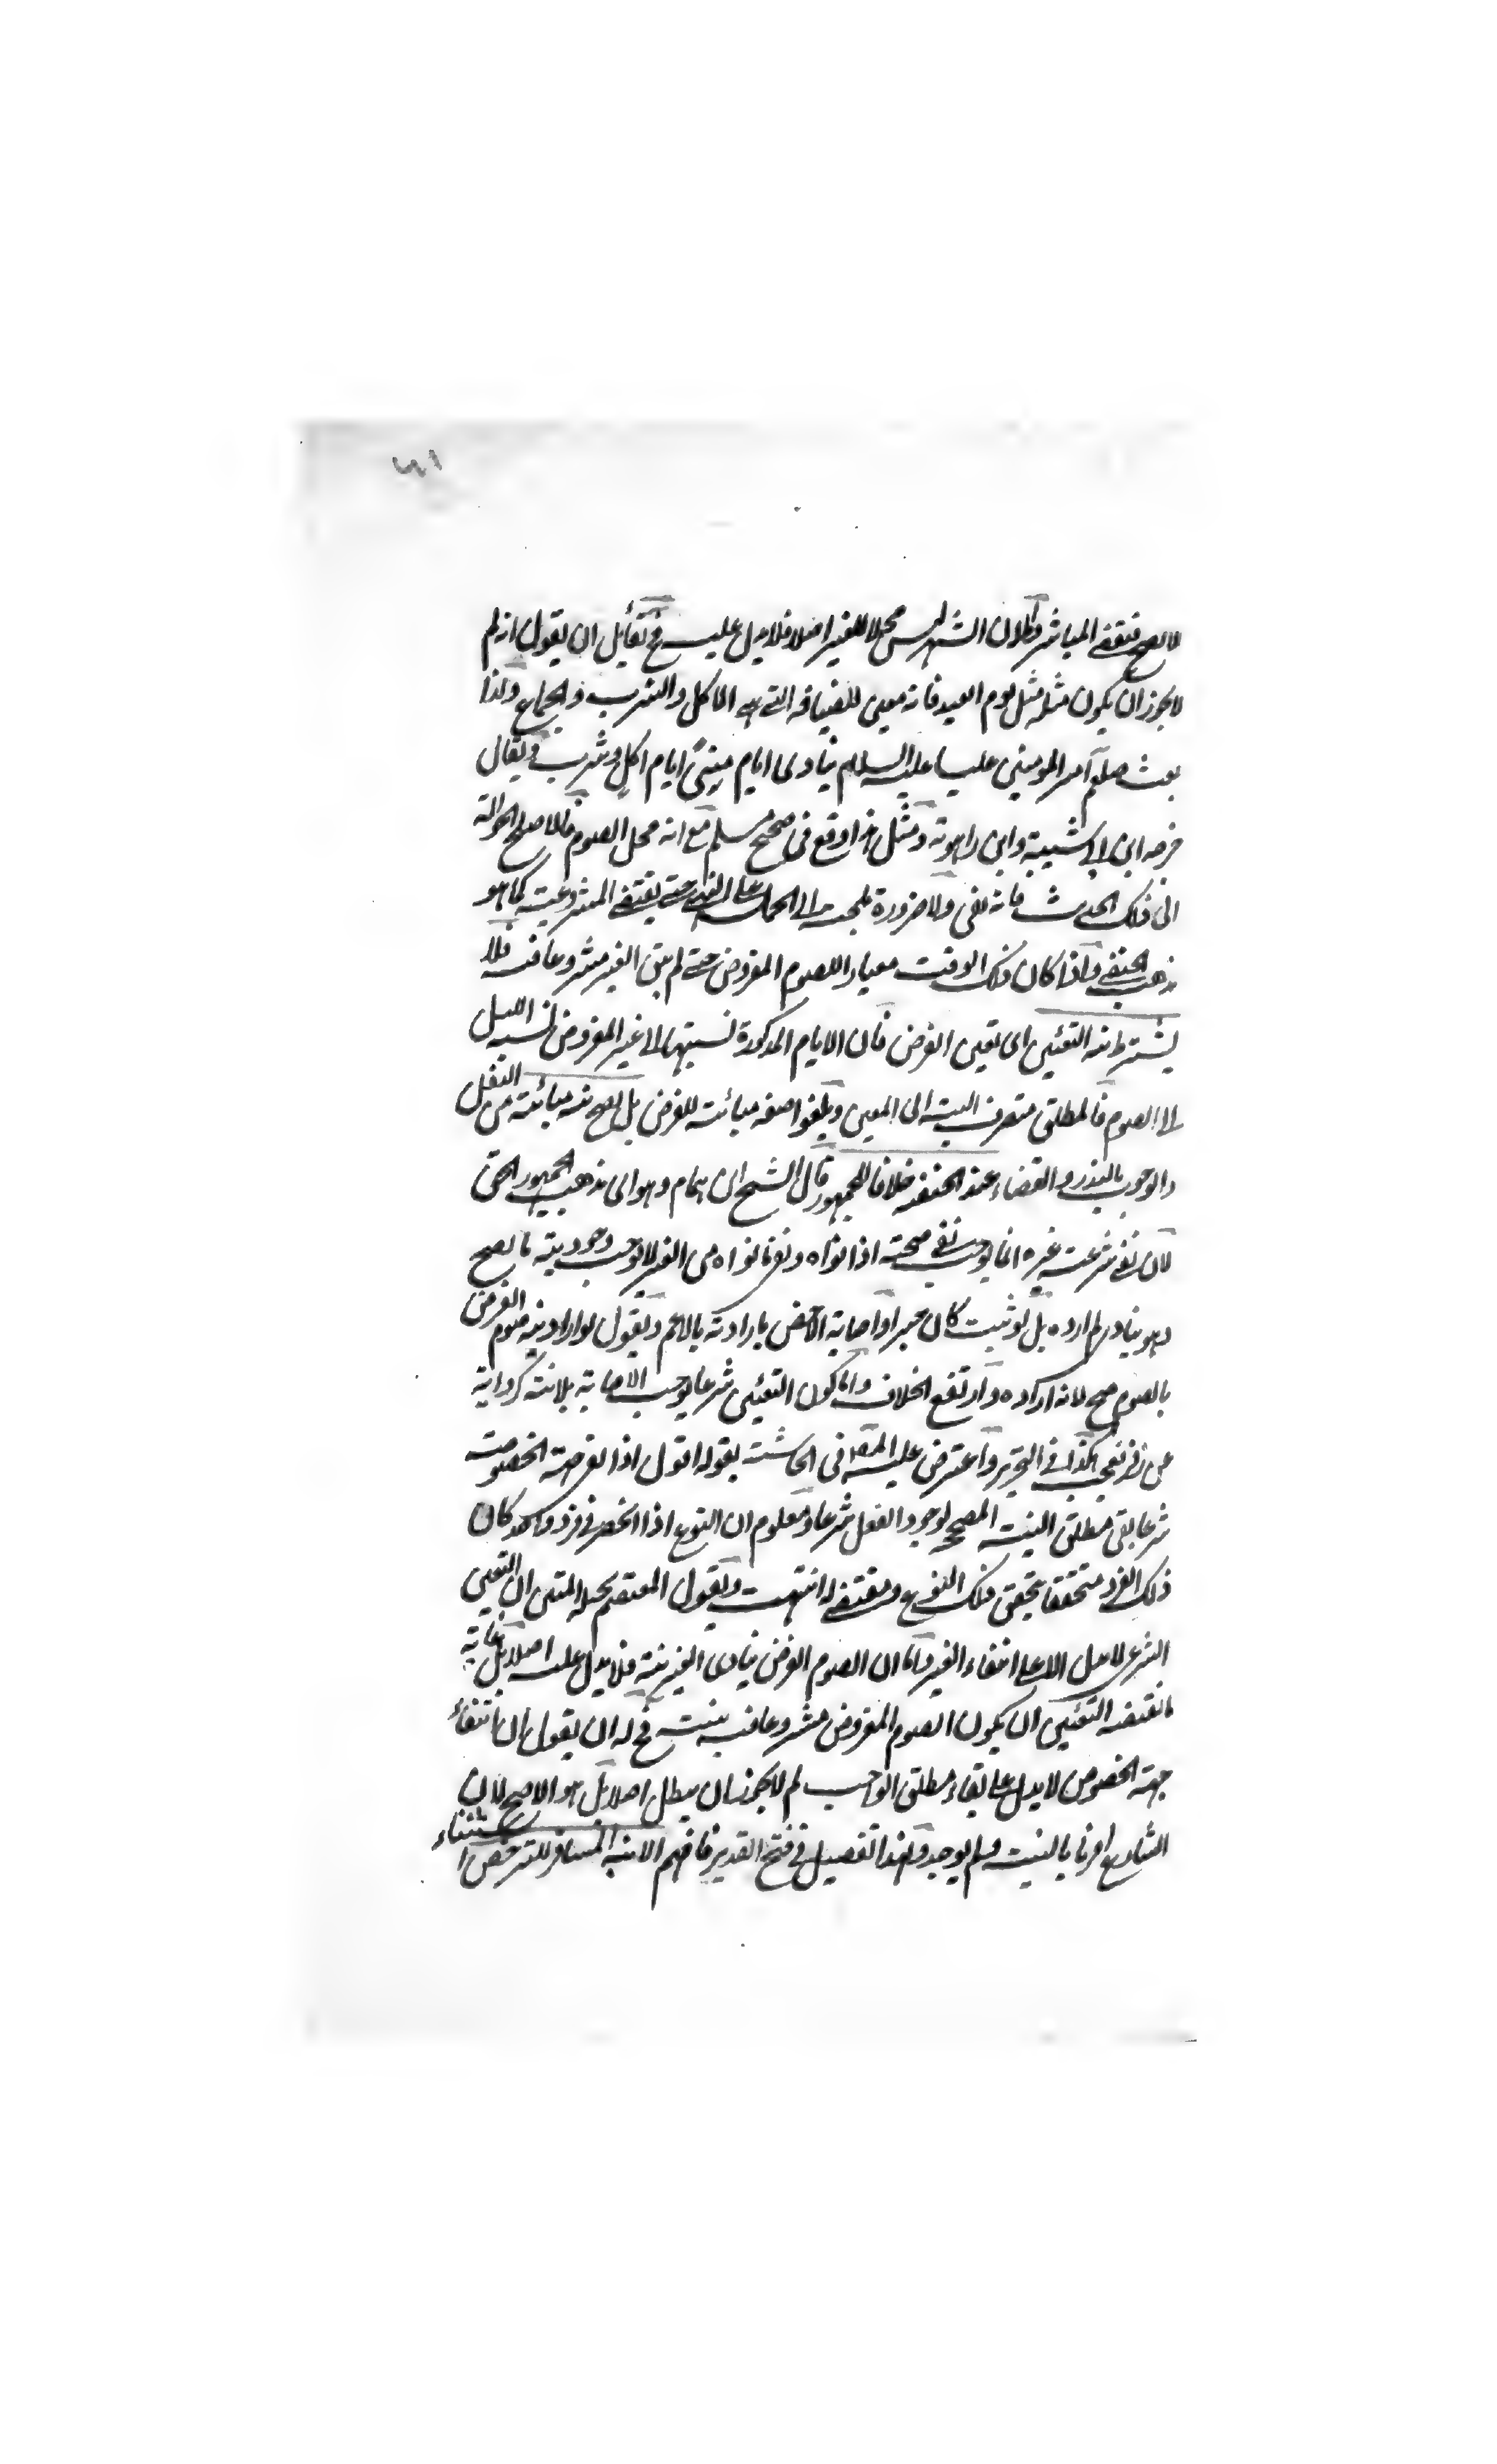 ٤١
لا يصح فيقضى المباشر وبطلان الشهر ليس محلا للغير اصلا فلا يدل عليه فح لقائل ان يقول انه لم
لا يجوز ان يكون مثله مثل يوم العيد فانه معين للضيافة التى هى الاكل والشرب والجماع ولذا
بعث صلعم امير المومنين عليا عليه السلام ينادى ايام منى ايام اكل وشرب وبعال
خرجه ابن ابى شيبة وابن راهويه ومثل هذا وقع فى صحيح مسلم مع انه محل الصوم فالاصلح الحوالة
الى ذلك الحديث فانه نفى ولا ضرورة ملجئة الى الحمل على النهى حتى يقتضى المشروعية كما هو
مذهب الحنفى واذا كان ذلك الوقت معيارا للصوم المفروض حتى لم يبق الغير مشروعا فيه فلا
يشترط نية التعيين اى تعيين الفرض فان الايام المذكورة نسبتها الى غير المفروض نسبة الليل
الى الصوم فالمطلق متصرف اليه الى المعين ويلغو صفة مباينة للفرض بل يصح بنية مباينة من النفل
والوجوب بالنذر والقضاء عند الحنفية خلافا للجمهور قال الشيخ ابن همام وهو اى مذهب الجمهور الحق
لان نفى شرعية غيره انما يوجب نفى صحته اذا نواه ونفى ما نواه من الغير لا يوجب وجود نية ما يصح
وهو ينادى لم ارده بل لو ثبت كان جبرا واصابة الاخص بارادته بالاعم ونقول لو اراد نية صوم الفرض
بالصوم صح لانه اراده وارتفع الخلاف واما كون التعيين شرعا يوجب الاصابة بلا نية كرواية
عن زفر فعجب هكذا فى التحرير واعترض عليه المصنف فى الحاشية بقوله اقول اذا نفى جهة الخصوصية
شرعا بقى مطلق النية المصحح لوجود الفعل شرعا ومعلوم ان النوع اذا انحصر فى فرد واحد كان
ذلك الفرد متحققا بتحقق ذلك النوع ومقتضى له انتهت ويقول المعتصم بحبله المتين ان التعيين
الشرعى لا يدل الا على انتفاء الغير واما ان الصوم الفرض ينادى الغير نية فلا يدل عليه اصلا بل غاية
ما يقتضيه التعيين ان يكون الصوم المفروض مشروعا فيه بنيت فح له ان يقول ان انتفاء
جهة الخصوص لا يدل على بقاء مطلق الواجب لم لا يجوز ان يبطل اصلا بل هو الاصح لان
الشارع امرنا بالنية ولم يوجد ولهذا تفصيل فى فتح القدير فافهم الا نية المسافر للترخص استثناء